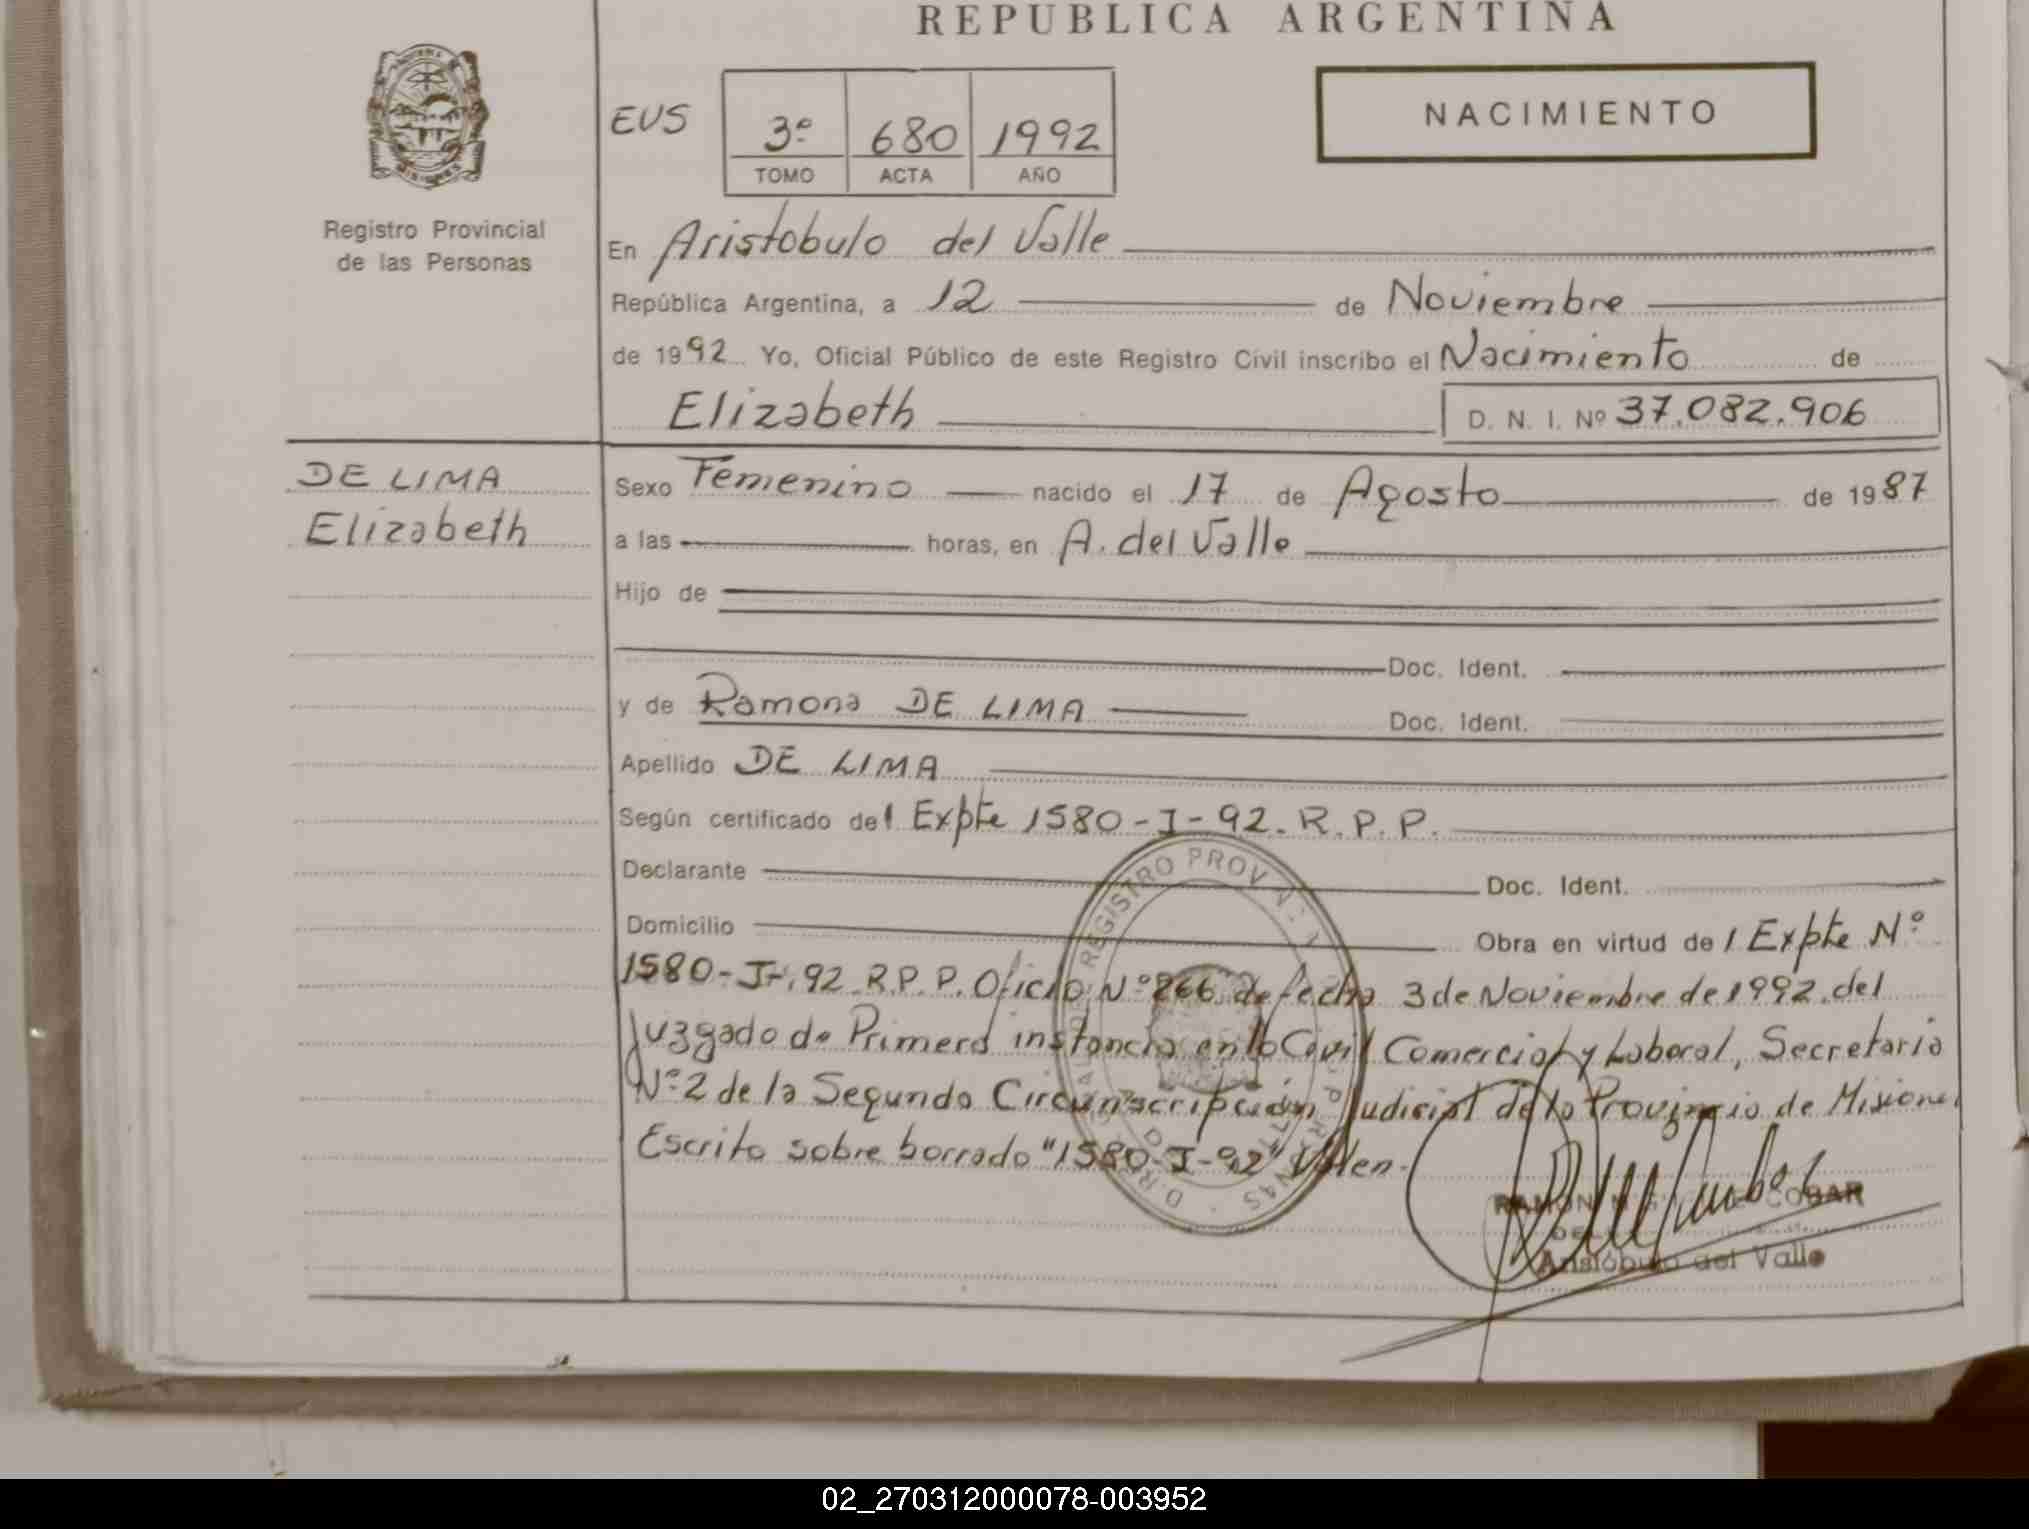 REPUBLICA ARGENTINA
NACIMIENTO
EUS
3º 680 1992
TOMO ACTA AÑO
Registro Provincial
de las Personas
En Aristobulo del Valle
República Argentina, a 12 de Noviembre
de 1992 Yo, Oficial Público de este Registro Civil inscribo el Nacimiento de
Elizabeth D. N. I. Nº 37.082.906
DE LIMA
Elizabeth
Sexo Femenino nacido el 17 de Agosto de 1987
a las horas, en A. del Valle
Hijo de
Doc. Ident.
y de Ramona DE LIMA Doc. Ident.
Apellido DE LIMA
Según certificado del Expte 1580-I-92. R.P.P.
Declarante Doc. Ident.
Domicilio Obra en virtud del Expte Nº
1580-I-92 R.P.P. Oficio Nº 866 de fecha 3 de Noviembre de 1992. del
Juzgado de Primera instancia en lo Civil Comercial y Laboral, Secretaria
Nº 2 de la Segunda Circunscripción Judicial de la Provincia de Misiones
Escrito sobre borrado "1580-I-92" Valen.
RAMON ESCOBAR
Aristóbulo del Valle
02_270312000078-003952